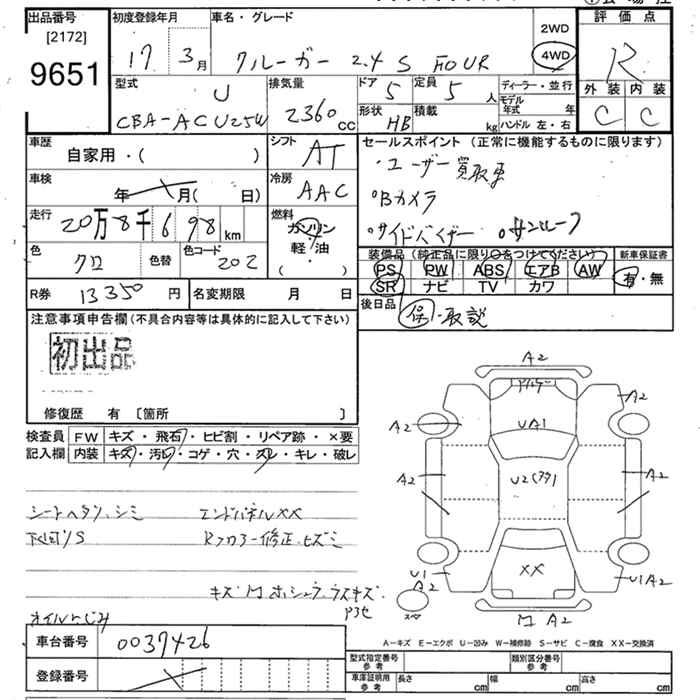 出品番号
[2172]
9651
初度登録年月
17 3月
車名・グレード
クルーガー 2.4 S FOUR
2WD
4WD
評価点
R
外装 内装
C C
型式
CBA-ACU25W
排気量
2360 cc
ドア 5
定員 5 人
形状 HB
積載 kg
ディーラー・並行
モデル年式 年
ハンドル 左・右
車歴
自家用・( )
シフト
AT
セールスポイント (正常に機能するものに限ります)
・ユーザー買取車
・Bカメラ
・サイドバイザー ・サンルーフ
車検
年 月( 日)
冷房
AAC
走行
20万8千698 km
燃料
ガソリン
軽・油
( ・ )
色
クロ
色替
色コード
202
装備品 (純正品に限り○をつけてください)
PS PW ABS エアB AW
SR ナビ TV カワ
新車保証書
有・無
R券 13350円
名変期限 月 日
後日品
保・取説
注意事項申告欄 (不具合内容等は具体的に記入して下さい)
初出品
修復歴 有 〔箇所 〕
検査員記入欄
FW キズ・飛石・ヒビ割・リペア跡・×要
内装 キズ・汚れ・コゲ・穴・スレ・キレ・破レ
シートヘタリ、シミ エンドパネルXX
下回りS Rフロアー修正、ヒズミ
オイルにじみ
A2
A2
A2
UA1
A2
A2
A2
U1
A2
XX
U1A2
A2
スペア
A-キズ E-エクボ U-凹み W-補修跡 S-サビ C-腐食 XX-交換済
車台番号 0037426
登録番号
型式指定番号 参考
類別区分番号 参考
車庫証明用 参考
長さ cm
幅 cm
高さ cm